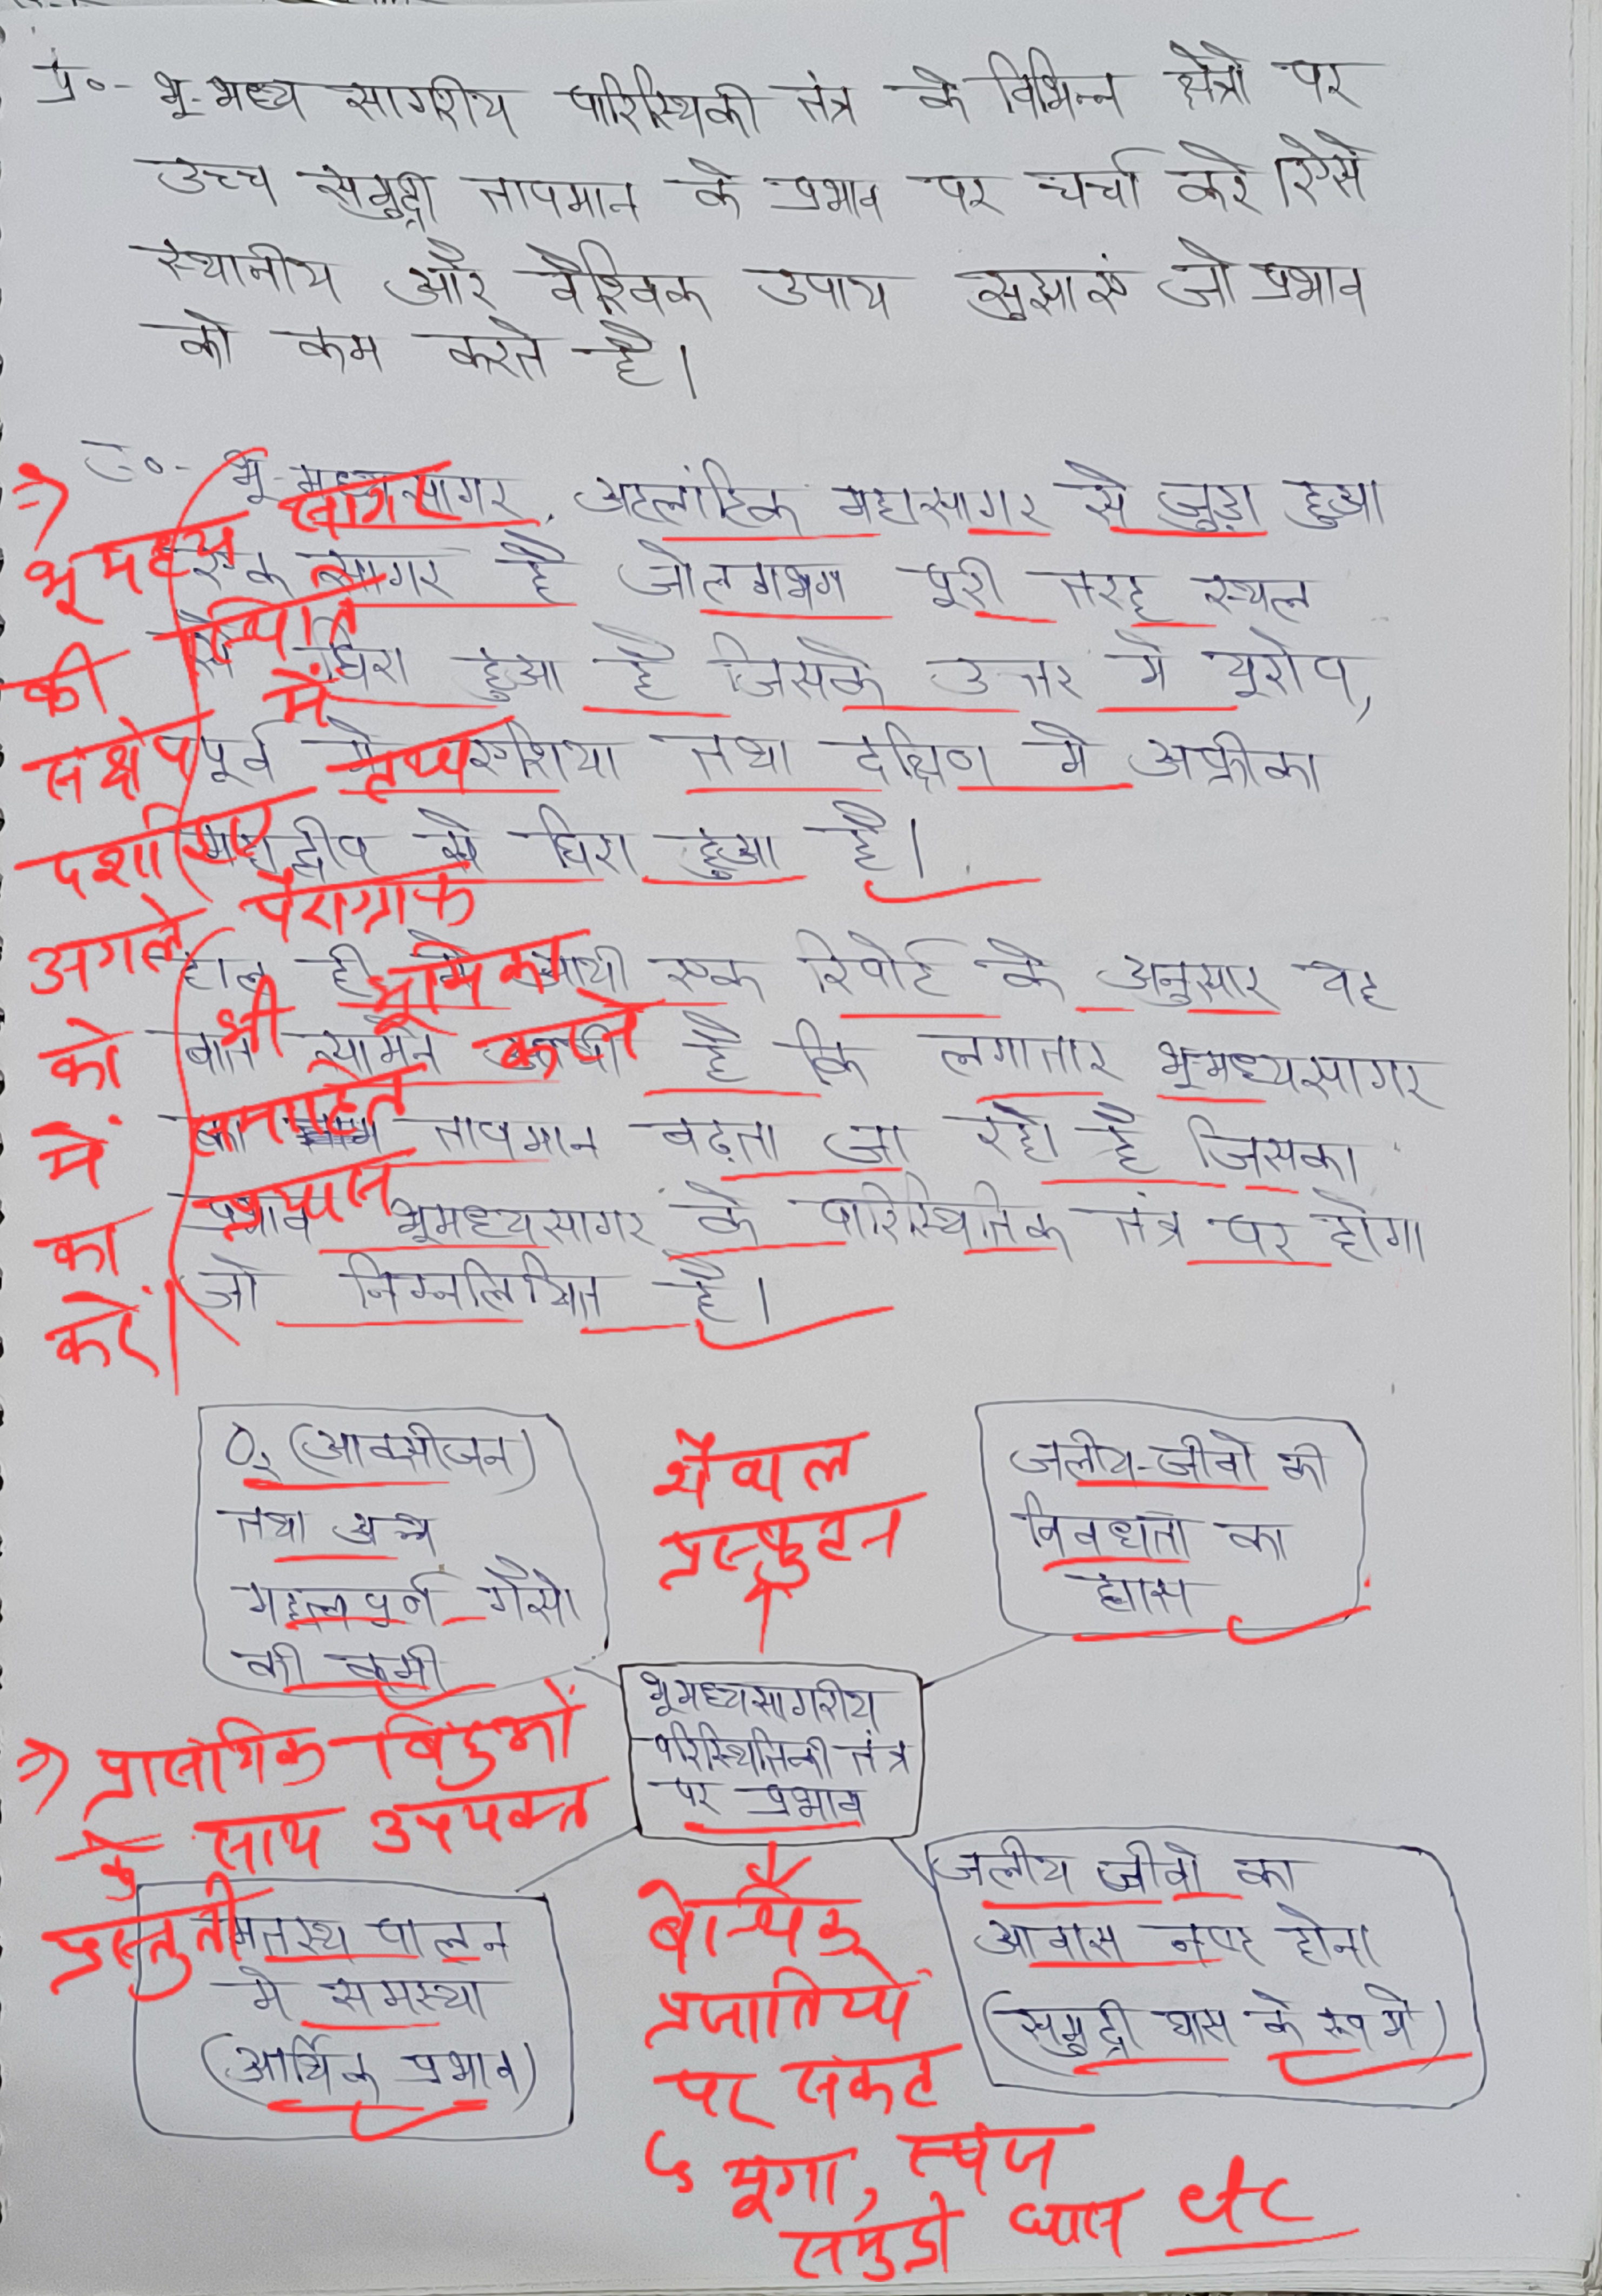 प्र०- भू-मध्य सागरीय पारिस्थिकी तंत्र के विभिन्न क्षेत्रो पर
उच्च समुद्री तापमान के प्रभाव पर चर्चा करे। ऐसे
स्थानीय और वैश्विक उपाय सुझाएं जो प्रभाव
को कम करते है।
उ०- भू-मध्यसागर, अटलांटिक महासागर से जुड़ा हुआ
एक सागर है जो लगभग पूरी तरह स्थल
से घिरा हुआ है जिसके उत्तर मे यूरोप,
पूर्व मे एशिया तथा दक्षिण मे अफ्रीका
महाद्वीप से घिरा हुआ है।
⇒ भूमध्य सागर
की स्थिति
संक्षेप में
दर्शाएं तथ्य
अगले पैराग्राफ
को भी भूमिका
में समाहित करने
का प्रयास
करें।
हाल ही मे आयी एक रिपोर्ट के अनुसार यह
बात सामने है कि लगातार भूमध्यसागर
का तापमान बढ़ता जा रहा है जिसका
प्रभाव भूमध्यसागर के पारिस्थितिक तंत्र पर होगा
जो निम्नलिखित है।
O2 (आक्सीजन)
तथा अन्य
महत्वपूर्ण गैसो
की कमी
शैवाल
प्रस्फुटन
जलीय-जीवो की
विवधता का
ह्रास
भूमध्यसागरीय
परिस्थितिकी तंत्र
पर प्रभाव
⇒ प्रासंगिक बिंदुओं
के साथ उपयुक्त
प्रस्तुती
मत्स्य पालन
मे समस्या
(आर्थिक प्रभाव)
जलीय जीवो का
आवास नष्ट होना
(समुद्री घास के रूप मे)
प्रजातियों
पर संकट
↳ मूंगा, स्पंज
समुद्री घास etc